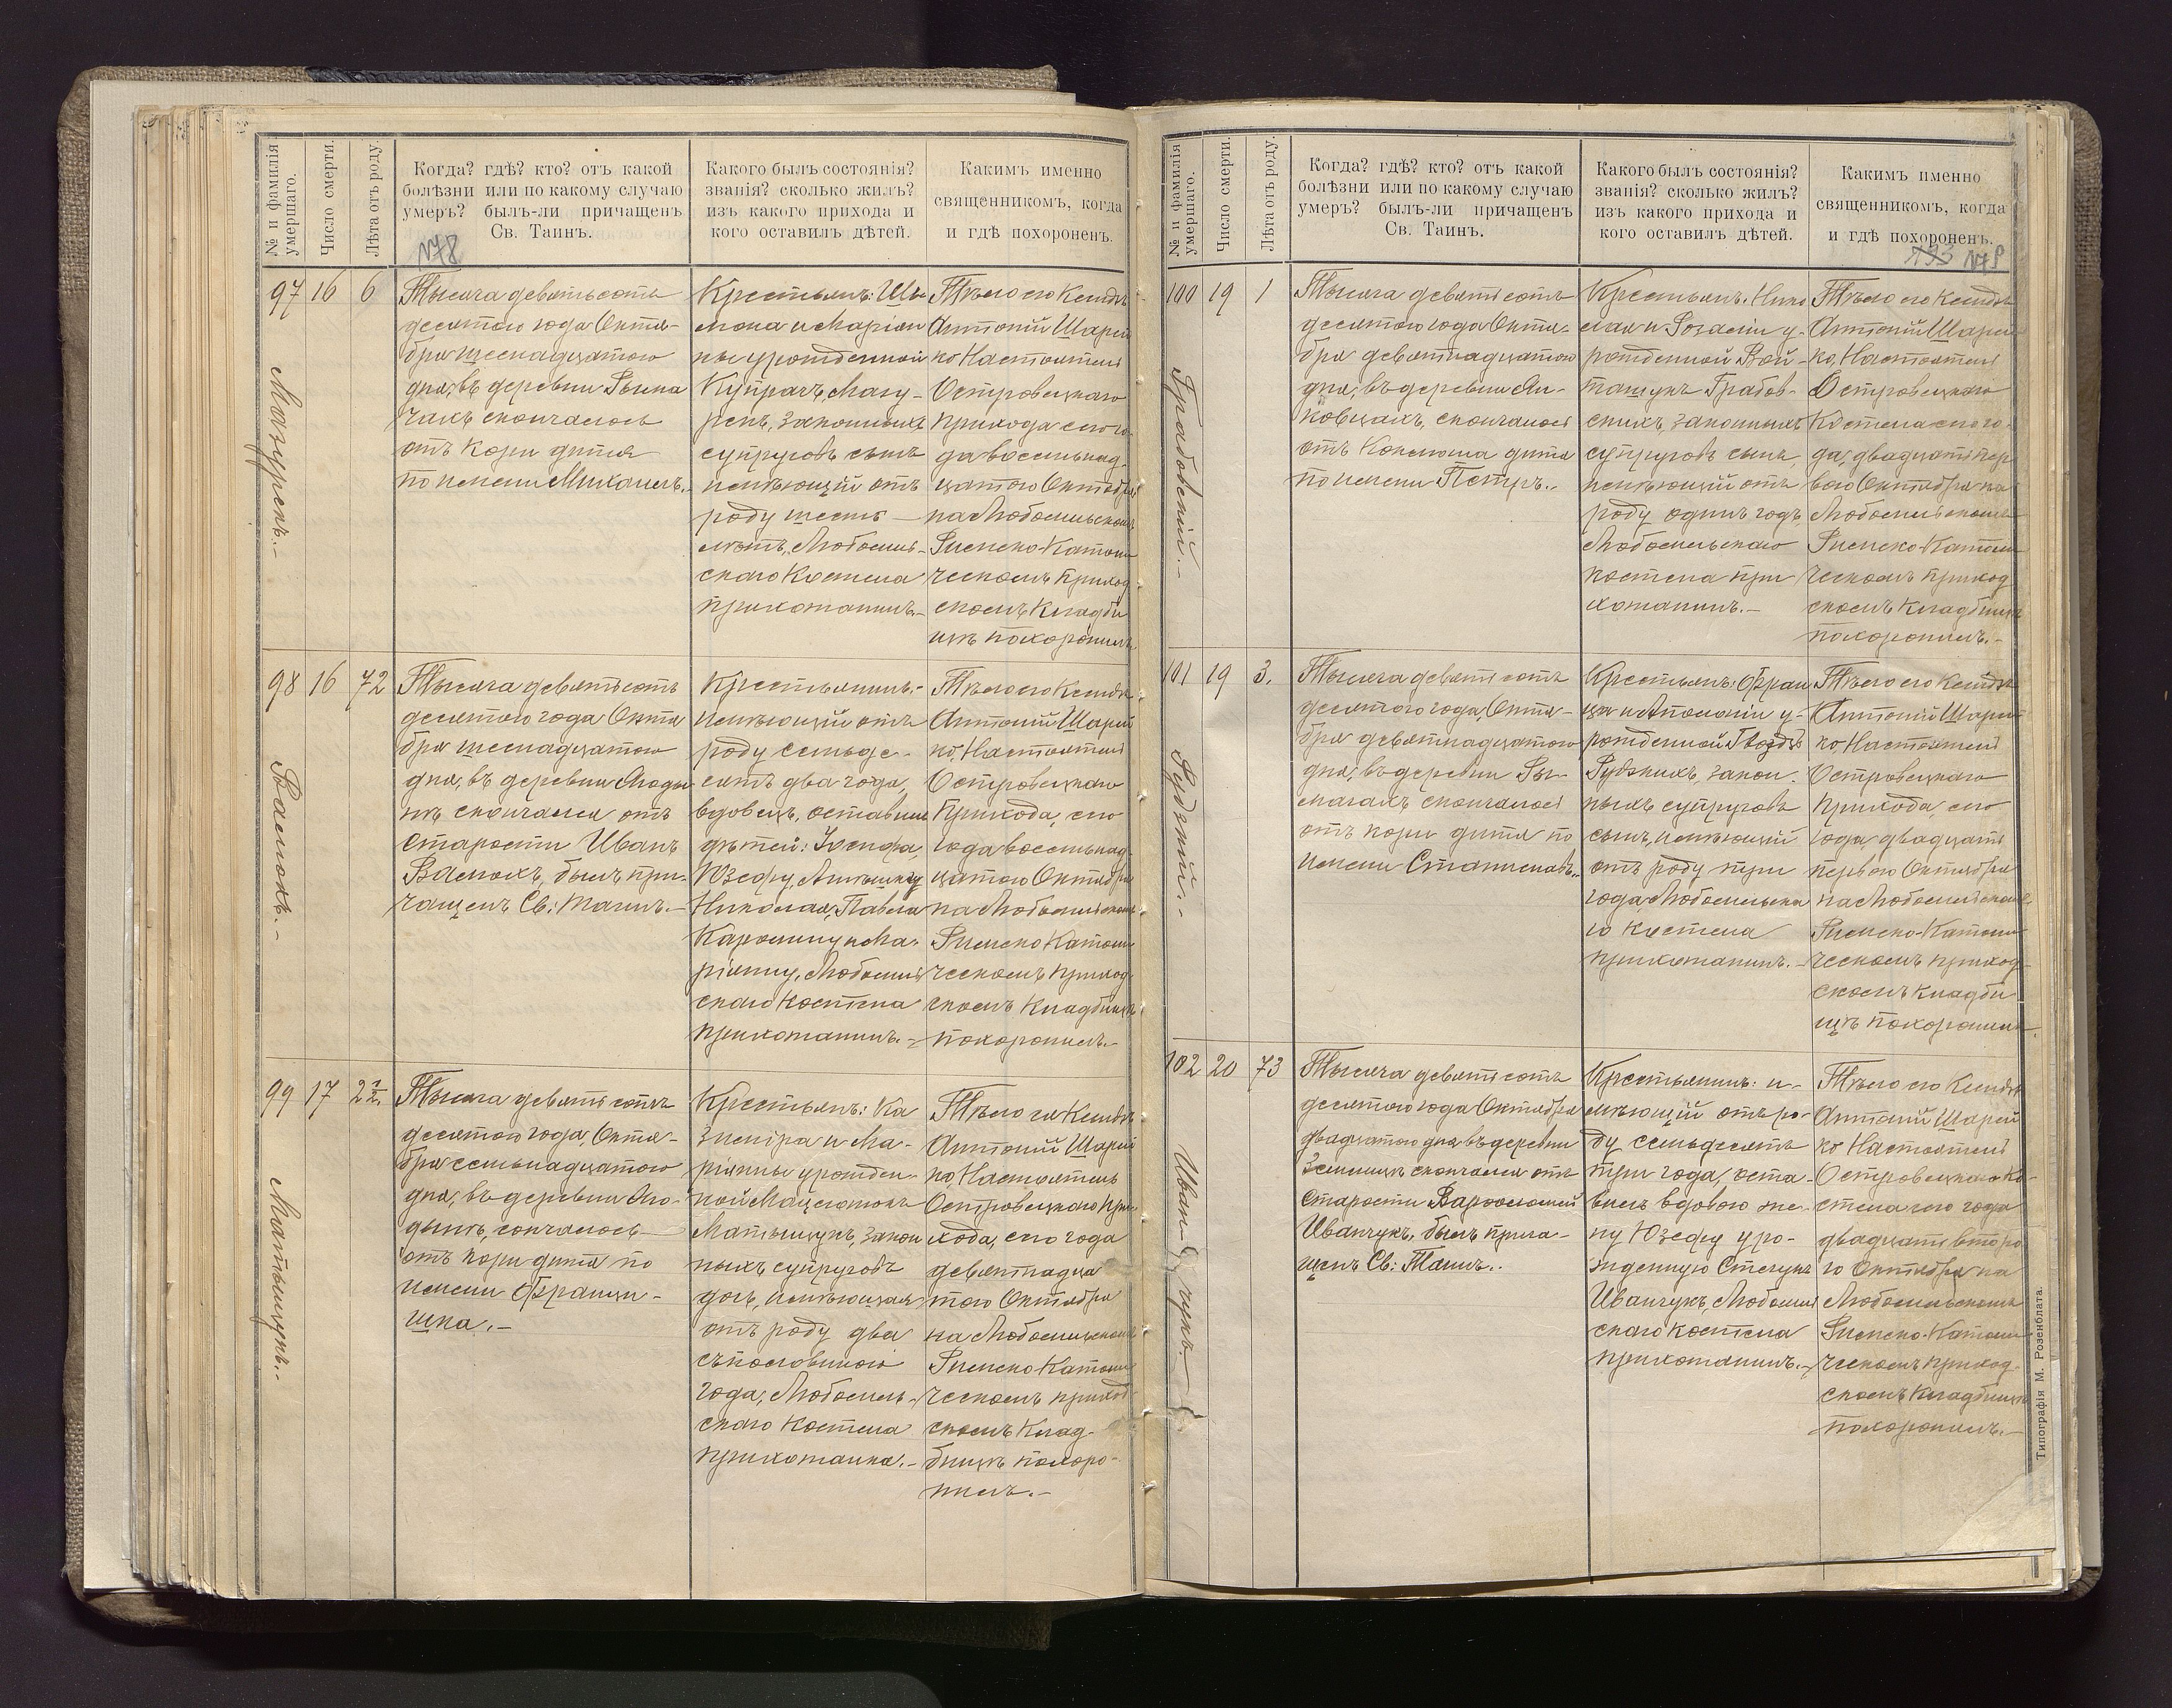 № и фамилія умершаго.
Число смерти.
Лѣта отъ роду.
Когда? гдѣ? кто? отъ какой
болѣзни или по какому случаю
умеръ? былъ-ли причащенъ
Св. Таинъ.
Какого былъ состоянія?
званія? сколько жилъ?
изъ какого прихода и
кого оставилъ дѣтей.
Какимъ именно
священникомъ, когда
и гдѣ похороненъ.
178
97 16 6
Мазурекъ.-
Тысяча девятьсотъ
десятого года Октя-
бря шеснадцатого
дня, въ деревни Рыма
чахъ скончалось
отъ кори дитя
по имени Михаилъ.
Крестьянъ: Ши
мона и Маріян
ны урожденной
Купрачъ, Мазу-
рекъ, законныхъ
супруговъ сынъ
имѣющій отъ
роду шесть -
лѣтъ, Любомль-
скаго Костела
прихожанинъ.-
Тѣло его Ксендзъ
Антоній Шарей
ко Настоятель
Островецкаго
прихода сего го-
да восемьнад-
цатого Октября
на Любомльскомъ
Римско-Катол
ческомъ приход
скомъ кладби
щѣ похоронилъ
98 16 72
Валюхъ.-
Тысяча девятьсотъ
десятого года Октя
бря шеснадцатого
дня, въ деревни
скончался отъ
старости Иванъ
Валюхъ, былъ при-
чащенъ Св: Таинъ.-
Крестьянинъ,-
имѣющій отъ
роду семьде-
сятъ два года,
вдовецъ, оставилъ
дѣтей: Іосифа,
Юзефу, Агнѣшку
Николая, Павла
Каролину и Ма-
ріянну, Любомль
скаго костела
прихожанинъ.-
Тѣло его Ксендзъ
Антоній Шарей
ко, Настоятель
Островецкаго
Прихода, сего
года восемьнад
цатого Октября
на Любомльскомъ
Римско Катол
ческомъ приход-
скомъ Кладбищѣ
похоронилъ.-
99 17 2½.
Матыщукъ.-
Тысяча девятьсотъ
десятого года, Октя-
бря семьнадцатого
дня, въ деревни
скончалось
отъ кори дитя по
имени Францы-
шка.-
Крестьянъ: Ка
зиміра и Ма-
ріянны урожден-
ной
Матыщукъ, закон
ныхъ супруговъ
дочь, имѣющая
отъ роду два
съ половиною
года, Любомль-
скаго Костела
прихожанка.-
Тѣло ея Ксендзъ
Антоній Шарей
ко, Настоятель
Островецкаго При-
хода, сего года
девятнадца
того Октября
на Любомльскомъ
Римско Катол
ческомъ приход
скомъ Клад-
бищѣ похоро-
нилъ.-
№ и фамилія умершаго.
Число смерти.
Лѣта отъ роду.
Когда? гдѣ? кто? отъ какой
болѣзни или по какому случаю
умеръ? былъ-ли причащенъ
Св. Таинъ.
Какого былъ состоянія?
званія? сколько жилъ?
изъ какого прихода и
кого оставилъ дѣтей.
Какимъ именно
священникомъ, когда
и гдѣ похороненъ.
193 178
100 19 1
Грабовскій.-
Тысяча девятьсотъ
десятого года Октя-
бря девятнадцатого
дня, въ деревни Ян-
ковцахъ, скончалось
отъ Коклюша дитя
по имени Петръ.-
Крестьянъ: Нико
лая и Розаліи у-
рожденной Вой-
ташукъ Грабов-
скихъ, законныхъ
супруговъ сынъ,
имѣющій отъ
роду одинъ годъ
Любомльскаго
костела при
хожанинъ.-
Тѣло его Ксендзъ
Антоній Шарей
ко, Настоятель
Островецкаго
Костела сего го-
да, двадцать пер
вого Октября на
Любомльскомъ
Римско-Катол
ческомъ приход
скомъ кладбищѣ
похоронилъ.-
101 19 3.
Рудзкій.-
Тысяча девятьсотъ
десятого года, Октя-
бря девятнадцатого
дня, въ деревни Ры-
мачахъ скончалось
отъ кори дитя по
имени Станиславъ.
Крестьянъ: Фран
ца и Аполоніи у-
рожденной Гвоздь
Рудзкихъ, закон-
ныхъ супруговъ
сынъ, имѣющій
отъ роду три
года, Любомльска
го костела
прихожанинъ.-
Тѣло его Ксендзъ
Антоній Шарей
ко, Настоятель
Островецкаго
прихода, сего
года двадцать
первого Октября
на Любомльскомъ
Римско-Катол
ческомъ приход-
скомъ кладби
щѣ похоронилъ.
102 20 73
Иванчукъ.-
Тысяча девятьсотъ
десятого года Октября
двадцатого дня въ деревни
Землицѣ скончался отъ
старости Варфоломей
Иванчукъ, былъ прича-
щенъ Св: Таинъ.
Крестьянинъ: и-
мѣющій отъ ро-
ду семьдесятъ
три года, оста-
вилъ вдовою же-
ну Юзефу уро-
жденную
Иванчукъ, Любомль
скаго костела
прихожанинъ.-
Тѣло его Ксендзъ
Антоній Шарей
ко Настоятель
Островецкаго Ко-
стела сего года
двадцать второ
го Октября на
Любомльскомъ
Римско-Катол
ческомъ приход-
скомъ кладбищѣ
похоронилъ.-
Типографія М. Розенблата.